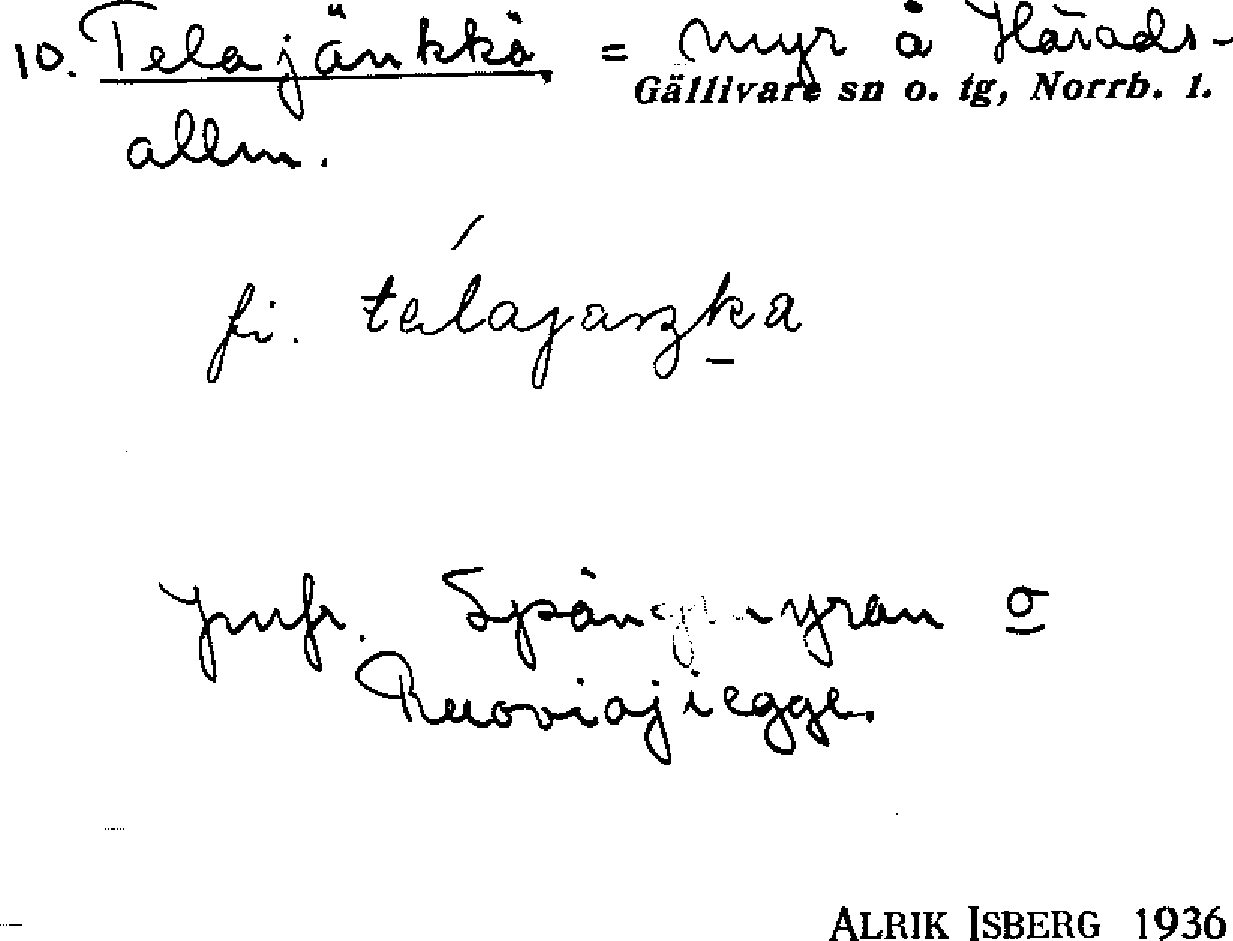 10. Telajänkkä, = myr å Härads-
Gällivare sn o. tg, Norrb. l.
allm.
fi. telajaŋka
jmfr. Spångmyran o
Ruoviajiegge.
ALRIK ISBERG 1936